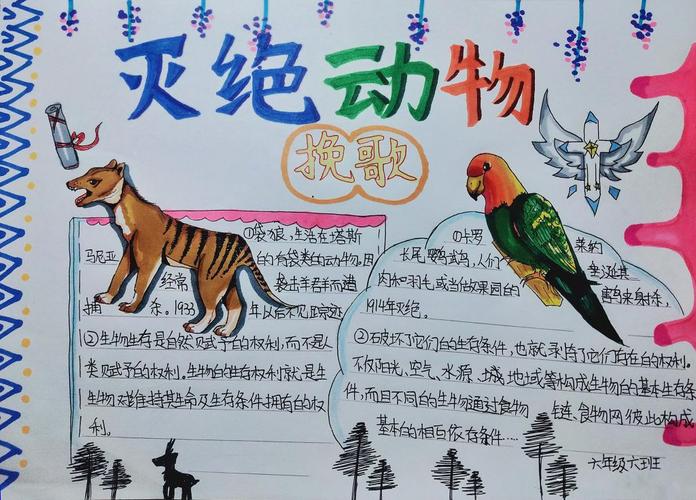 灭绝动物
挽歌
①袋狼,生活在塔斯
马尼亚 的有袋类的动物,因
经常 袭击羊群而遭
捕 杀.1933 年以后不见踪迹
②生物生存是自然赋予的权利,而不是人
类赋予的权利。生物的生存权利就是生
生物对维持其生命及生存条件拥有的权
利。
①卡罗 莱纳
长尾鹦鹉,人们 垂涎其
肉和羽毛或当做果园的 害鸟来射杀,
1914年灭绝。
②破坏了它们的生存条件,也就剥夺了它们存在的权利。
不仅阳光、空气、水源、城、地域等构成生物的基本生存条
件,而且不同的生物通过食物 链、食物网彼此构成
基本的相互依存条件…
六年级六班